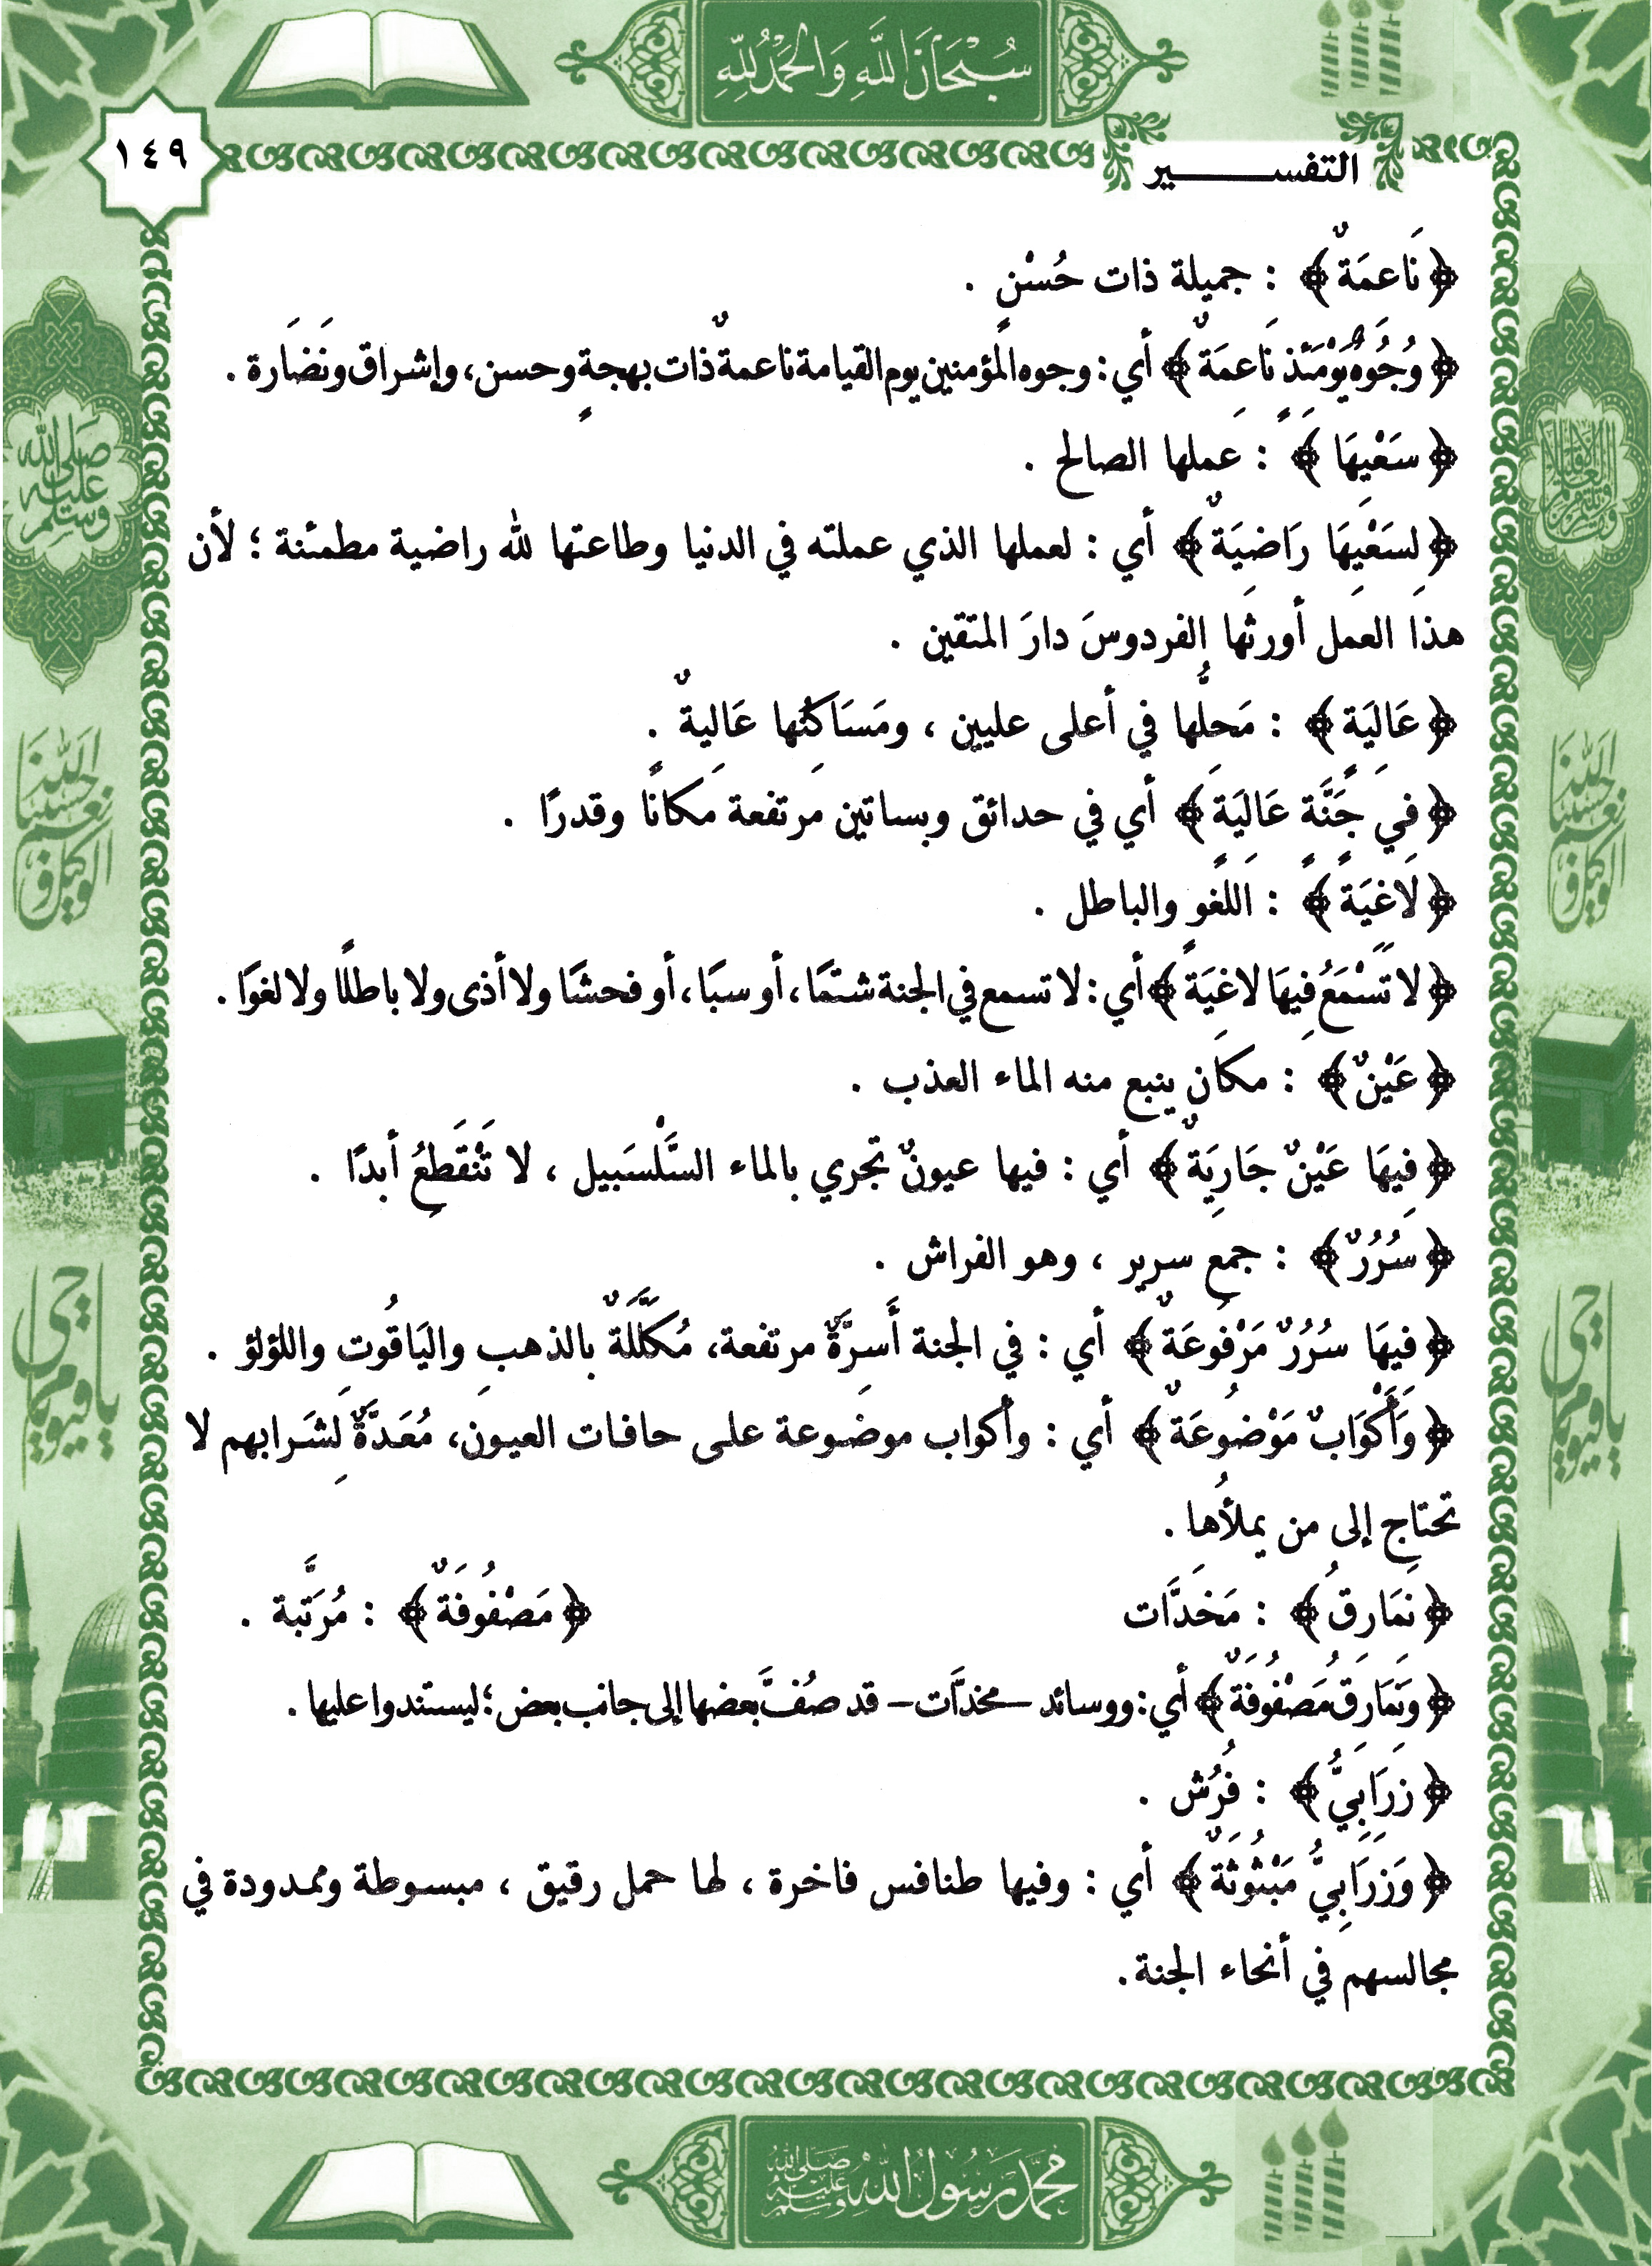 سُبْحَانَ اللَّهِ وَالْحَمْدُ لِلَّهِ
١٤٩
التفسير
﴿نَاعِمَةٌ﴾ : جميلة ذات حُسْنٍ .
﴿وُجُوهٌ يَوْمَئِذٍ نَاعِمَةٌ﴾ أي : وجوه المؤمنين يوم القيامة ناعمةٌ ذات بهجةٍ وحسن، وإشراق ونَضَارة .
﴿سَعْيِهَا﴾ : عملها الصالح .
﴿لِسَعْيِهَا رَاضِيَةٌ﴾ أي : لعملها الذي عملته في الدنيا وطاعتها لله راضية مطمئنة ؛ لأن
هذا العمل أورثها الفردوسَ دارَ المتقين .
﴿عَالِيَةٍ﴾ : مَحَلُّها في أعلى عليين ، ومَسَاكِنُها عَاليةٌ .
﴿فِي جَنَّةٍ عَالِيَةٍ﴾ أي في حدائق وبساتين مرتفعة مكانًا وقدرًا .
﴿لَاغِيَةً﴾ : اللَّغو والباطل .
﴿لا تَسْمَعُ فِيهَا لاغِيَةً﴾ أي : لا تسمع في الجنة شتمًا، أو سبًا، أو فحشًا ولا أذى ولا باطلًا ولا لغوًا .
﴿عَيْنٌ﴾ : مكان ينبع منه الماء العذب .
﴿فِيهَا عَيْنٌ جَارِيَةٌ﴾ أي : فيها عيونٌ تجري بالماء السَّلْسَبيل ، لا تَنْقَطِعُ أبدًا .
﴿سُرُرٌ﴾ : جمع سرير ، وهو الفراش .
﴿فِيهَا سُرُرٌ مَرْفُوعَةٌ﴾ أي : في الجنة أَسِرَّةٌ مرتفعة، مُكَلَّلَةٌ بالذهبِ واليَاقُوتِ واللؤلؤ .
﴿وَأَكْوَابٌ مَوْضُوعَةٌ﴾ أي : وأكواب موضوعة على حافات العيون، مُعَدَّةٌ لِشَرابهم لا
تحتاج إلى من يملأُها .
﴿نَمَارِقُ﴾ : مَخَدَّات ﴿مَصْفُوفَةٌ﴾ : مُرَتَّبة .
﴿وَنَمَارِقُ مَصْفُوفَةٌ﴾ أي : ووسائد –مخدَّات– قد صُفَّ بعضها إلى جانب بعض ؛ ليستندوا عليها .
﴿زَرَابِيُّ﴾ : فُرُش .
﴿وَزَرَابِيُّ مَبْثُوثَةٌ﴾ أي : وفيها طنافس فاخرة ، لها خمل رقيق ، مبسوطة وممدودة في
مجالسهم في أنحاء الجنة.
صلى الله عليه وسلم
حسبنا الله ونعم الوكيل
حسبنا الله ونعم الوكيل
يا حي يا قيوم
يا حي يا قيوم
محمد رسول الله صلى الله عليه وسلم